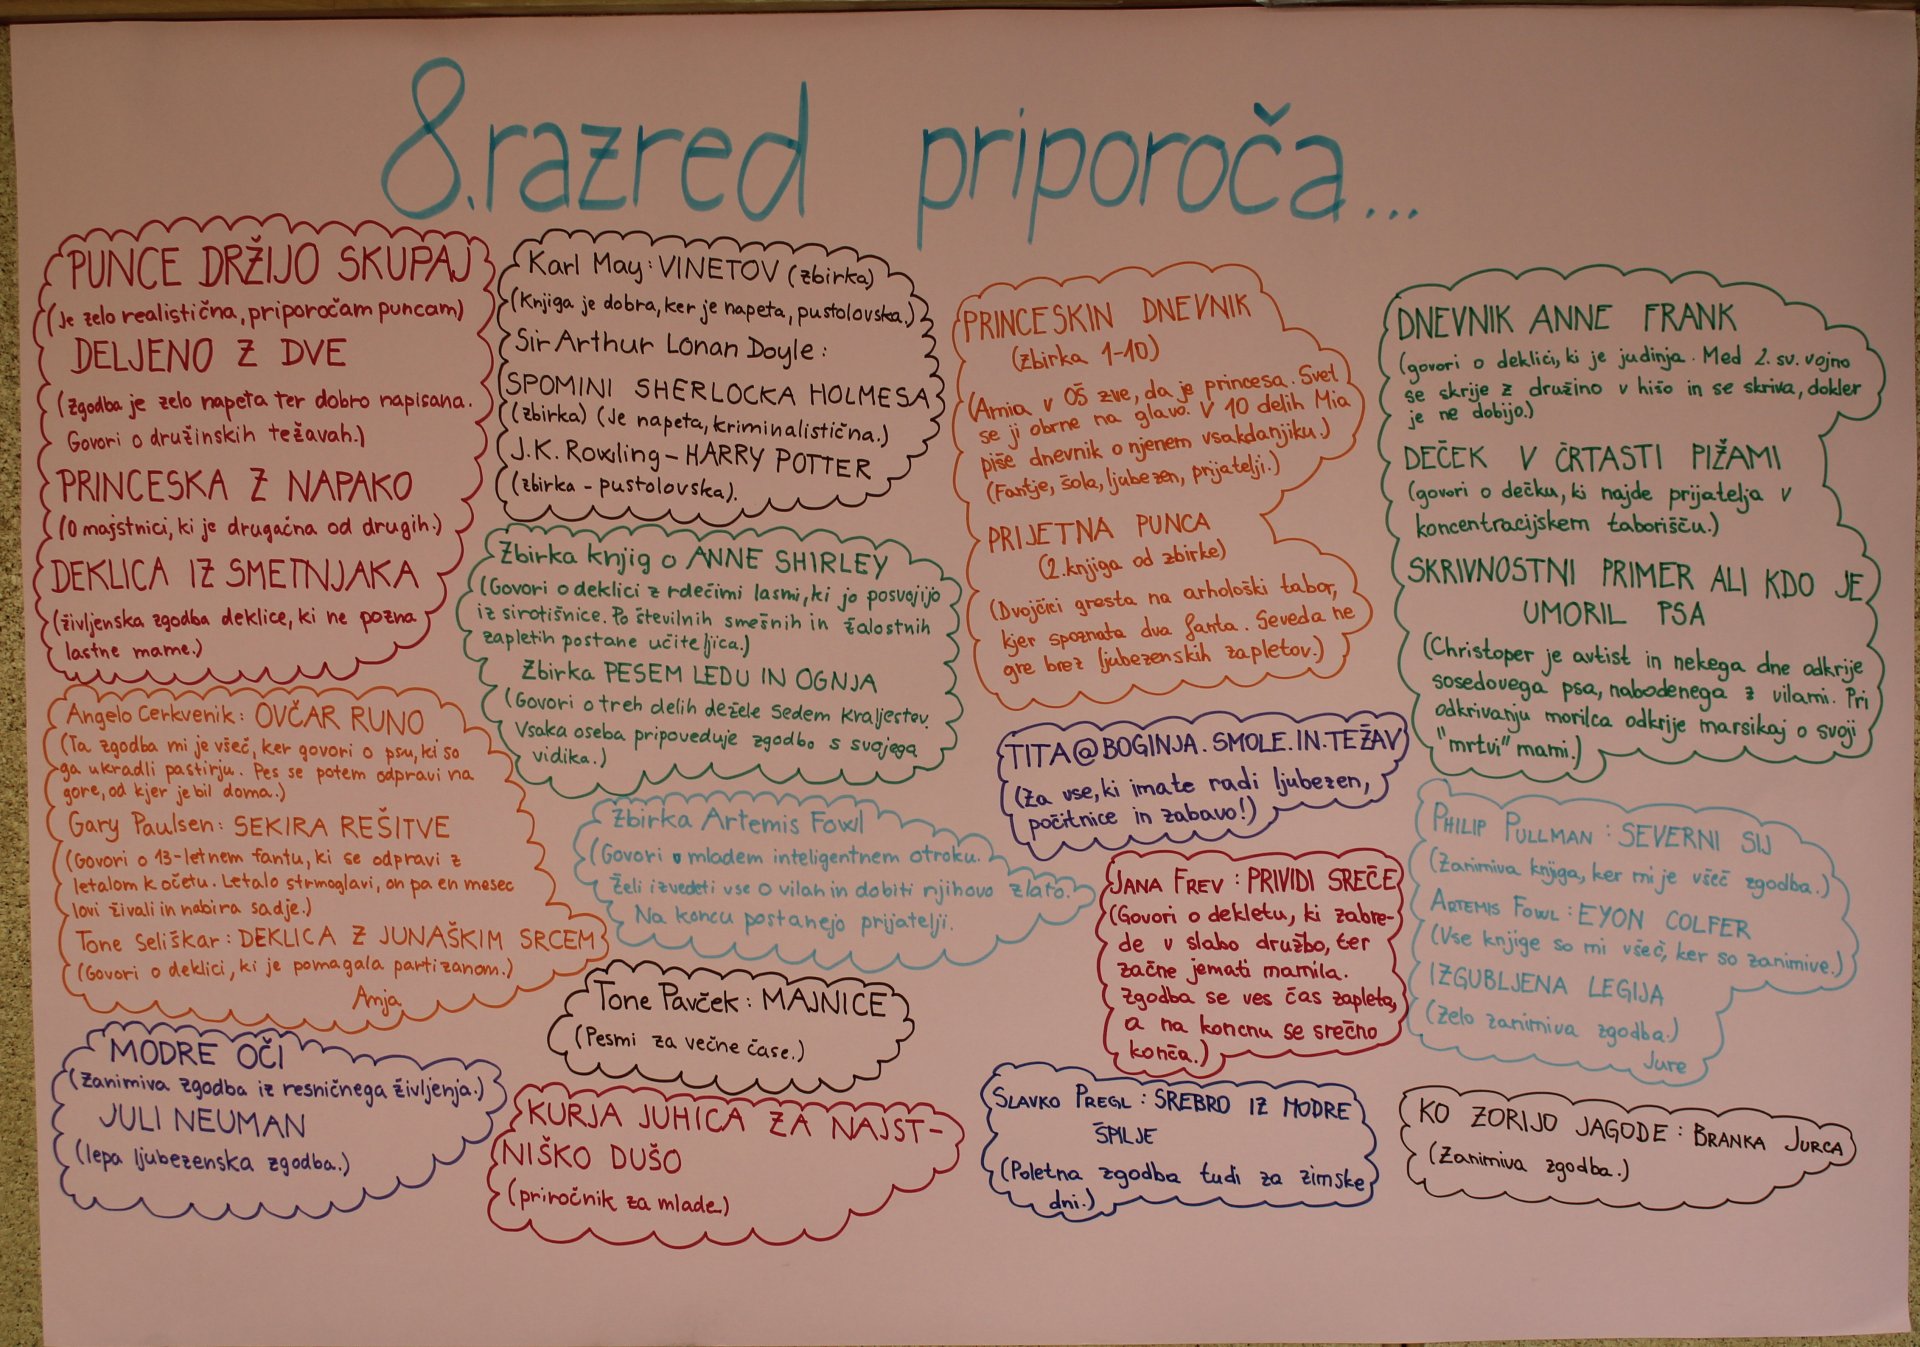 8.razred priporoča...
PUNCE DRŽIJO SKUPAJ
(je zelo realistična, priporočam puncam)
DELJENO Z DVE
(zgodba je zelo napeta ter dobro napisana.
Govori o družinskih težavah.)
PRINCESKA Z NAPAKO
(O majstnici, ki je drugačna od drugih.)
DEKLICA IZ SMETNJAKA
(življenska zgodba deklice, ki ne pozna
lastne mame.)
Angelo Cerkvenik: OVČAR RUNO
(Ta zgodba mi je všeč, ker govori o psu, ki so
ga ukradli pastirju. Pes se potem odpravi na
gore, od kjer je bil doma.)
Gary Paulsen: SEKIRA REŠITVE
(Govori o 13-letnem fantu, ki se odpravi z
letalom k očetu. Letalo strmoglavi, on pa en mesec
lovi živali in nabira sadje.)
Tone Seliškar: DEKLICA Z JUNAŠKIM SRCEM
(Govori o deklici, ki je pomagala partizanom.)
Anja
MODRE OČI
(Zanimiva zgodba iz resničnega življenja.)
JULI NEUMAN
(lepa ljubezenska zgodba.)
Karl May: VINETOV (zbirka)
(Knjiga je dobra, ker je napeta, pustolovska.)
Sir Arthur Lonan Doyle:
SPOMINI SHERLOCKA HOLMESA
(zbirka) (Je napeta, kriminalistična.)
J.K. Rowling - HARRY POTTER
(zbirka - pustolovska).
Zbirka knjig o ANNE SHIRLEY
(Govori o deklici z rdečimi lasmi, ki jo posvojijo
iz sirotišnice. Po številnih smešnih in žalostnih
zapletih postane učiteljica.)
Zbirka PESEM LEDU IN OGNJA
(Govori o treh delih dežele Sedem Kraljestev.
Vsaka oseba pripoveduje zgodbo s svojega
vidika.)
Zbirka Artemis Fowl
(Govori o mladem inteligentnem otroku.
Želi izvedeti vse o vilah in dobiti njihovo zlato.
Na koncu postanejo prijatelji.
Tone Pavček: MAJNICE
(Pesmi za večne čase.)
KURJA JUHICA ZA NAJST-
NIŠKO DUŠO
(priročnik za mlade)
PRINCESKIN DNEVNIK
(zbirka 1-10)
(Amia v OŠ zve, da je princesa. Svet
se ji obrne na glavo. V 10 delih Mia
piše dnevnik o njenem vsakdanjiku.)
(Fantje, šola, ljubezen, prijatelji.)
PRIJETNA PUNCA
(2.knjiga od zbirke)
(Dvojčici gresta na arhološki tabor,
kjer spoznata dva fanta. Seveda ne
gre brez ljubezenskih zapletov.)
TITA@BOGINJA.SMOLE.IN.TEŽAV
(Za vse, ki imate radi ljubezen,
počitnice in zabavo!)
JANA FREV: PRIVIDI SREČE
(Govori o dekletu, ki zabre-
de v slabo družbo, ter
začne jemati mamila.
Zgodba se ves čas zapleta,
a na koncnu se srečno
konča.)
SLAVKO PREGL: SREBRO IZ MODRE
ŠPILJE
(Poletna zgodba tudi za zimske
dni.)
DNEVNIK ANNE FRANK
(govori o deklici, ki je judinja. Med 2. sv. vojno
se skrije z družino v hišo in se skriva, dokler
je ne dobijo.)
DEČEK V ČRTASTI PIŽAMI
(govori o dečku, ki najde prijatelja v
koncentracijskem taborišču.)
SKRIVNOSTNI PRIMER ALI KDO JE
UMORIL PSA
(Christoper je avtist in nekega dne odkrije
sosedovega psa, nabodenega z vilami. Pri
odkrivanju morilca odkrije marsikaj o svoji
"mrtvi" mami.)
PHILIP PULLMAN: SEVERNI SIJ
(Zanimiva knjiga, ker mi je všeč zgodba.)
ARTEMIS FOWL: EYON COLFER
(Vse knjige so mi všeč, ker so zanimive.)
IZGUBLJENA LEGIJA
(Zelo zanimiva zgodba.)
Jure
KO ZORIJO JAGODE: BRANKA JURCA
(Zanimiva zgodba.)